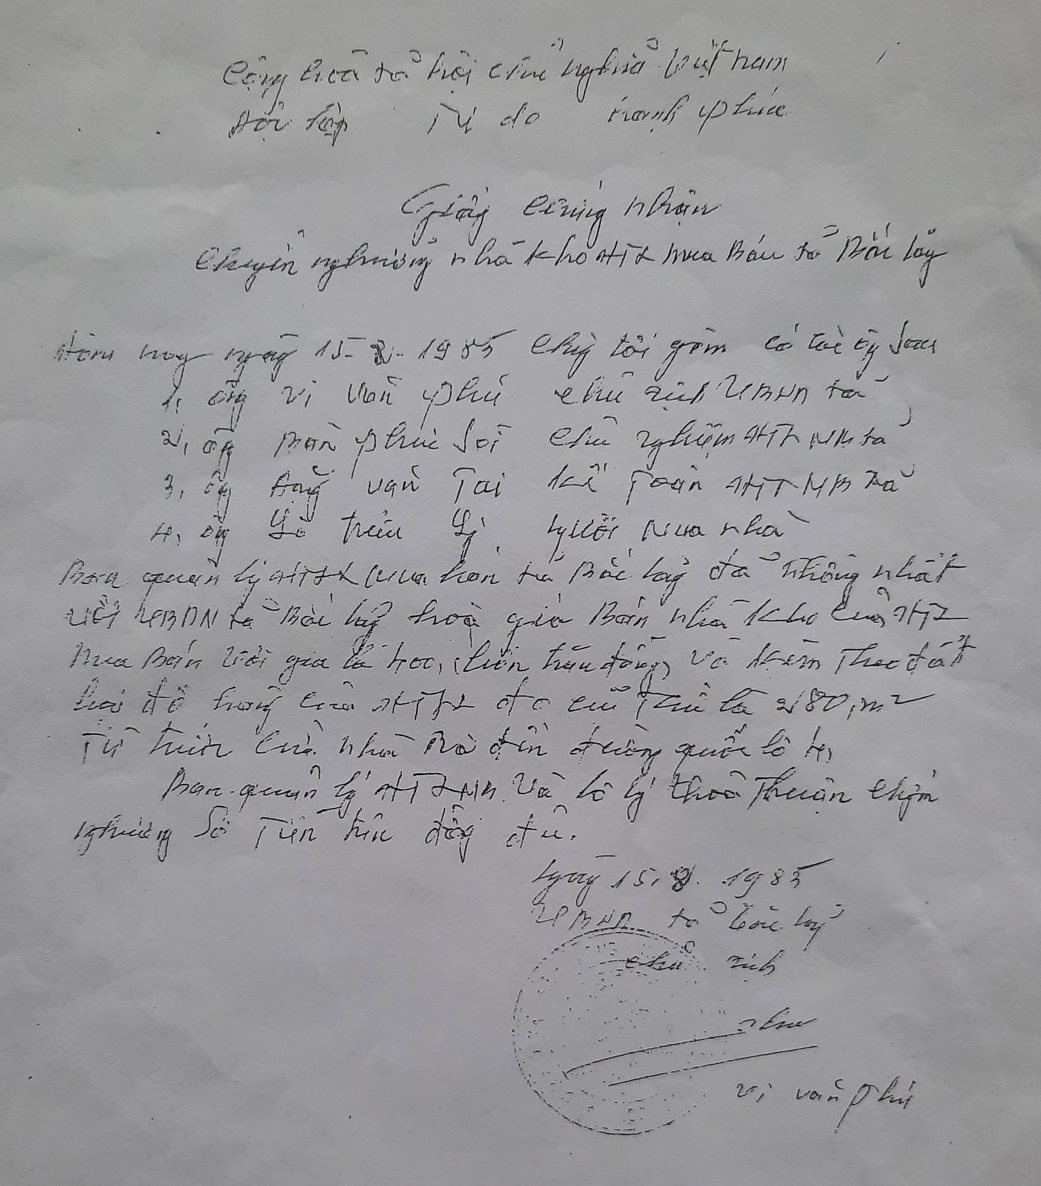 Cộng hoà xã hội chủ nghĩa Việt Nam
Độc lập Tự do Hạnh phúc
Giấy chứng nhận
Chuyển nhượng nhà kho HTX mua bán xã Bắc lãng
Hôm nay ngày 15-8-1985 chúng tôi gồm có các ông sau
1, ông Vi Văn Phú chủ tịch UBND xã
2, ông Phúc chủ nghiệm HTX MB xã
3, ông Đặng Văn Tai kế toán HTX MB xã
4, ông Lô Triều Lý người mua nhà
Ban quản lý HTX mua bán xã Bắc lãng đã thống nhất
với UBND xã Bắc lãng hoá giá bán nhà kho của HTX
mua bán với giá là đồng và kèm theo đất
của HTX đo cụ thể là 280, m2
Từ trước cửa nhà ra đến đường quốc lộ 4,
Ban quản lý HTX MB và lô lý thoả thuận chuyển
nhượng số tiền trên đầy đủ.
Ngày 15.8.1985
UBND xã Bắc lãng
Chủ tịch
Phú
Vi Văn Phú